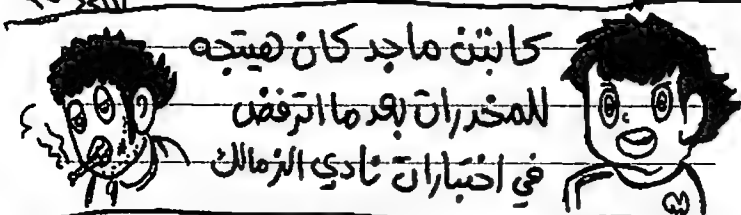 كابتن ماجد كان هيتجه
للمخدرات بعد ما اترفض
في اختبارات نادي الزمالك